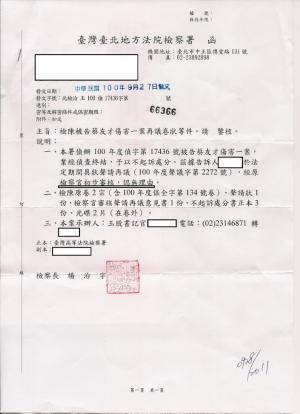 檔　號：
保存年限：
臺灣臺北地方法院檢察署　函
機關地址：臺北市中正區博愛路131號
傳　真：02-23892898
發文日期：中華民國100年9月27日發文
發文字號：北檢治 玉 100 偵 17436字第 66366 號
速別：
密等及解密條件或保密期限：
附件：如文
主旨：檢陳被告蔡友才傷害一案再議卷狀等件。請 鑒核。
說明：
一、本署偵辦100年度偵字第17436號被告蔡友才傷害一案，
業經偵查終結，予以不起訴處分。茲據告訴人 於法
定期間具狀聲請再議（100年度聲議字第2272號），經原
檢察官初步審核，認無理由。
二、檢陳原卷2宗（含100年度他字第134號卷）、聲請狀1
份、檢察官審核聲請再議意見書1份、不起訴處分書正本3
份、光碟2片（在卷外）。
三、本案承辦人：玉股書記官 電話：(02)23146871 轉
正本：臺灣高等法院檢察署
副本：
檢察長 楊 治 宇
0928/2011
第一頁 共一頁